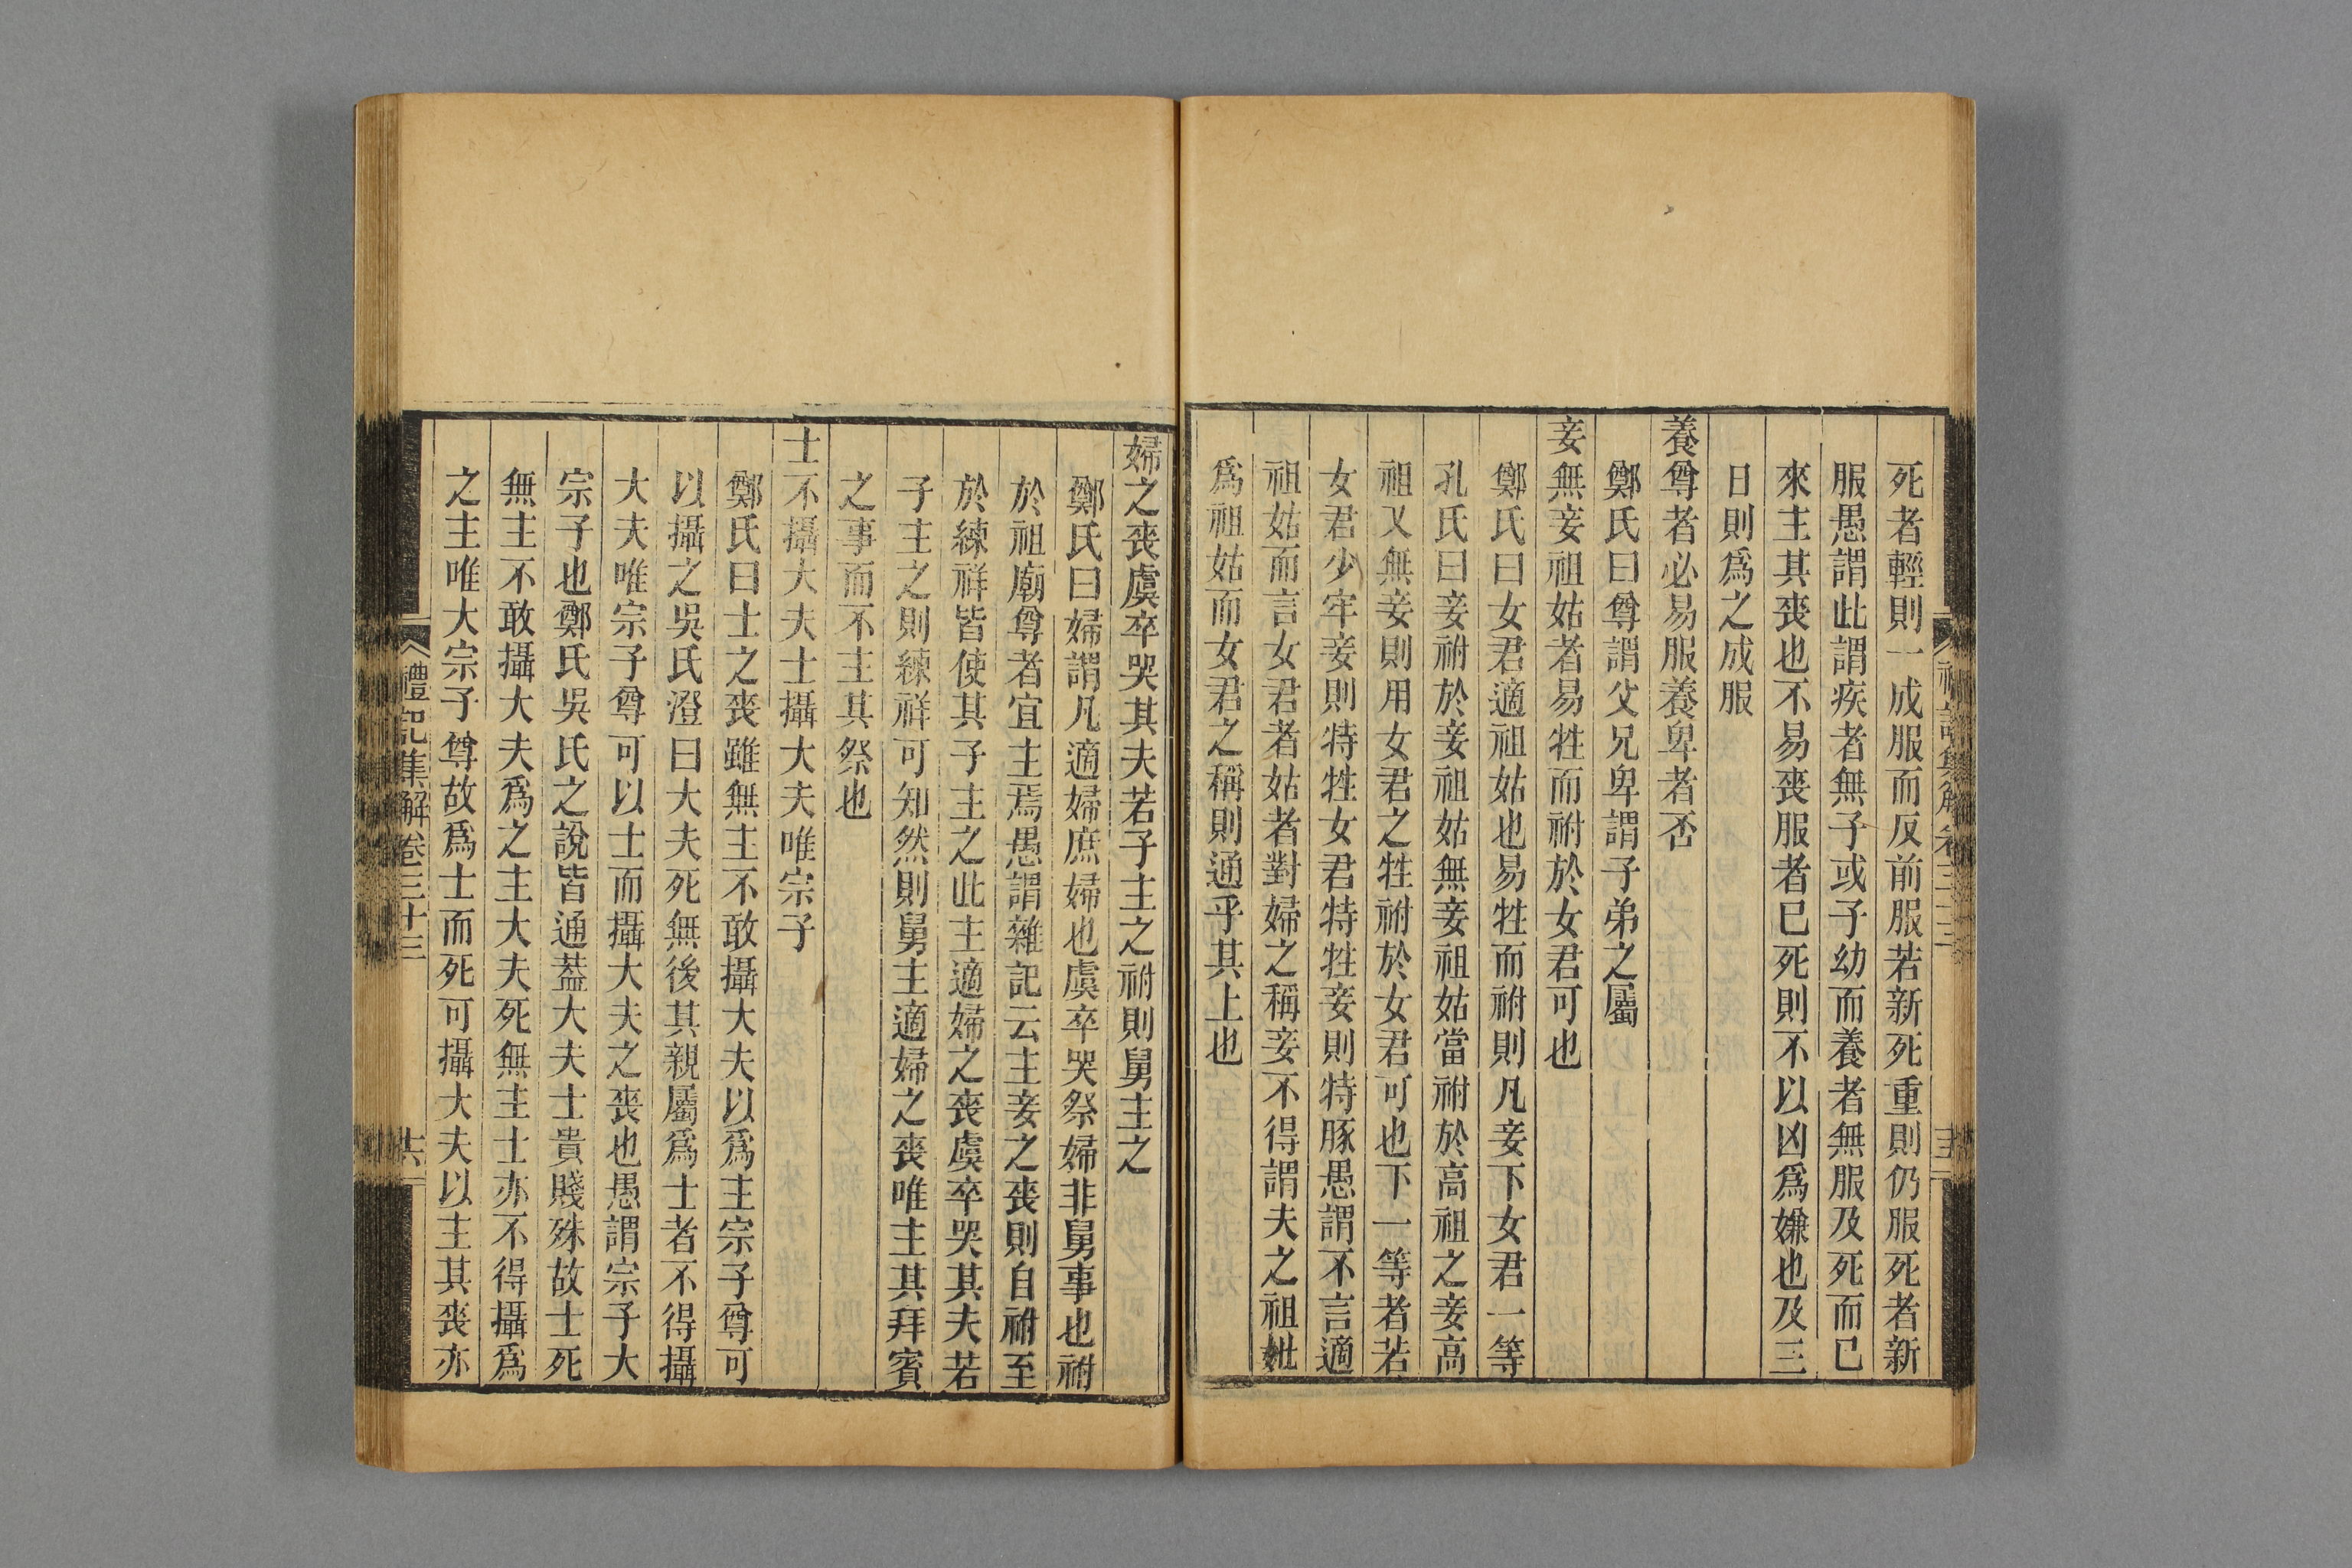 死者輕則一成服而反前服若新死重則仍服死者新
服愚謂此謂疾者無子或子幼而養者無服及死而已
來主其喪也不易喪服者已死則不以凶爲嫌也及三
日則爲之成服
養尊者必易服養卑者否
鄭氏曰尊謂父兄卑謂子弟之屬
妾無妾祖姑者易牲而祔於女君可也
鄭氏曰女君適祖姑也易牲而祔則凡妾下女君一等
孔氏曰妾祔於妾祖姑無妾祖姑當祔於高祖之妾高
祖又無妾則用女君之牲祔於女君可也下一等者若
女君少牢妾則特牲女君特牲妾則特豚愚謂不言適
祖姑而言女君者姑者對婦之稱妾不得謂夫之祖妣
爲祖姑而女君之稱則通乎其上也
婦之喪虞卒哭其夫若子主之祔則舅主之
鄭氏曰婦謂凡適婦庶婦也虞卒哭祭婦非舅事也祔
於祖廟尊者宜主焉愚謂雜記云主妾之喪則自祔至
於練祥皆使其子主之此主適婦之喪虞卒哭其夫若
子主之則練祥可知然則舅主適婦之喪唯主其拜賓
之事而不主其祭也
士不攝大夫士攝大夫唯宗子
鄭氏曰士之喪雖無主不敢攝大夫以爲主宗子尊可
以攝之吳氏澄曰大夫死無後其親屬爲士者不得攝
大夫唯宗子尊可以士而攝大夫之喪也愚謂宗子大
宗子也鄭氏吳氏之說皆通蓋大夫士貴賤殊故士死
無主不敢攝大夫爲之主大夫死無主士亦不得攝爲
之主唯大宗子尊故爲士而死可攝大夫以主其喪亦
禮記集解卷三十三